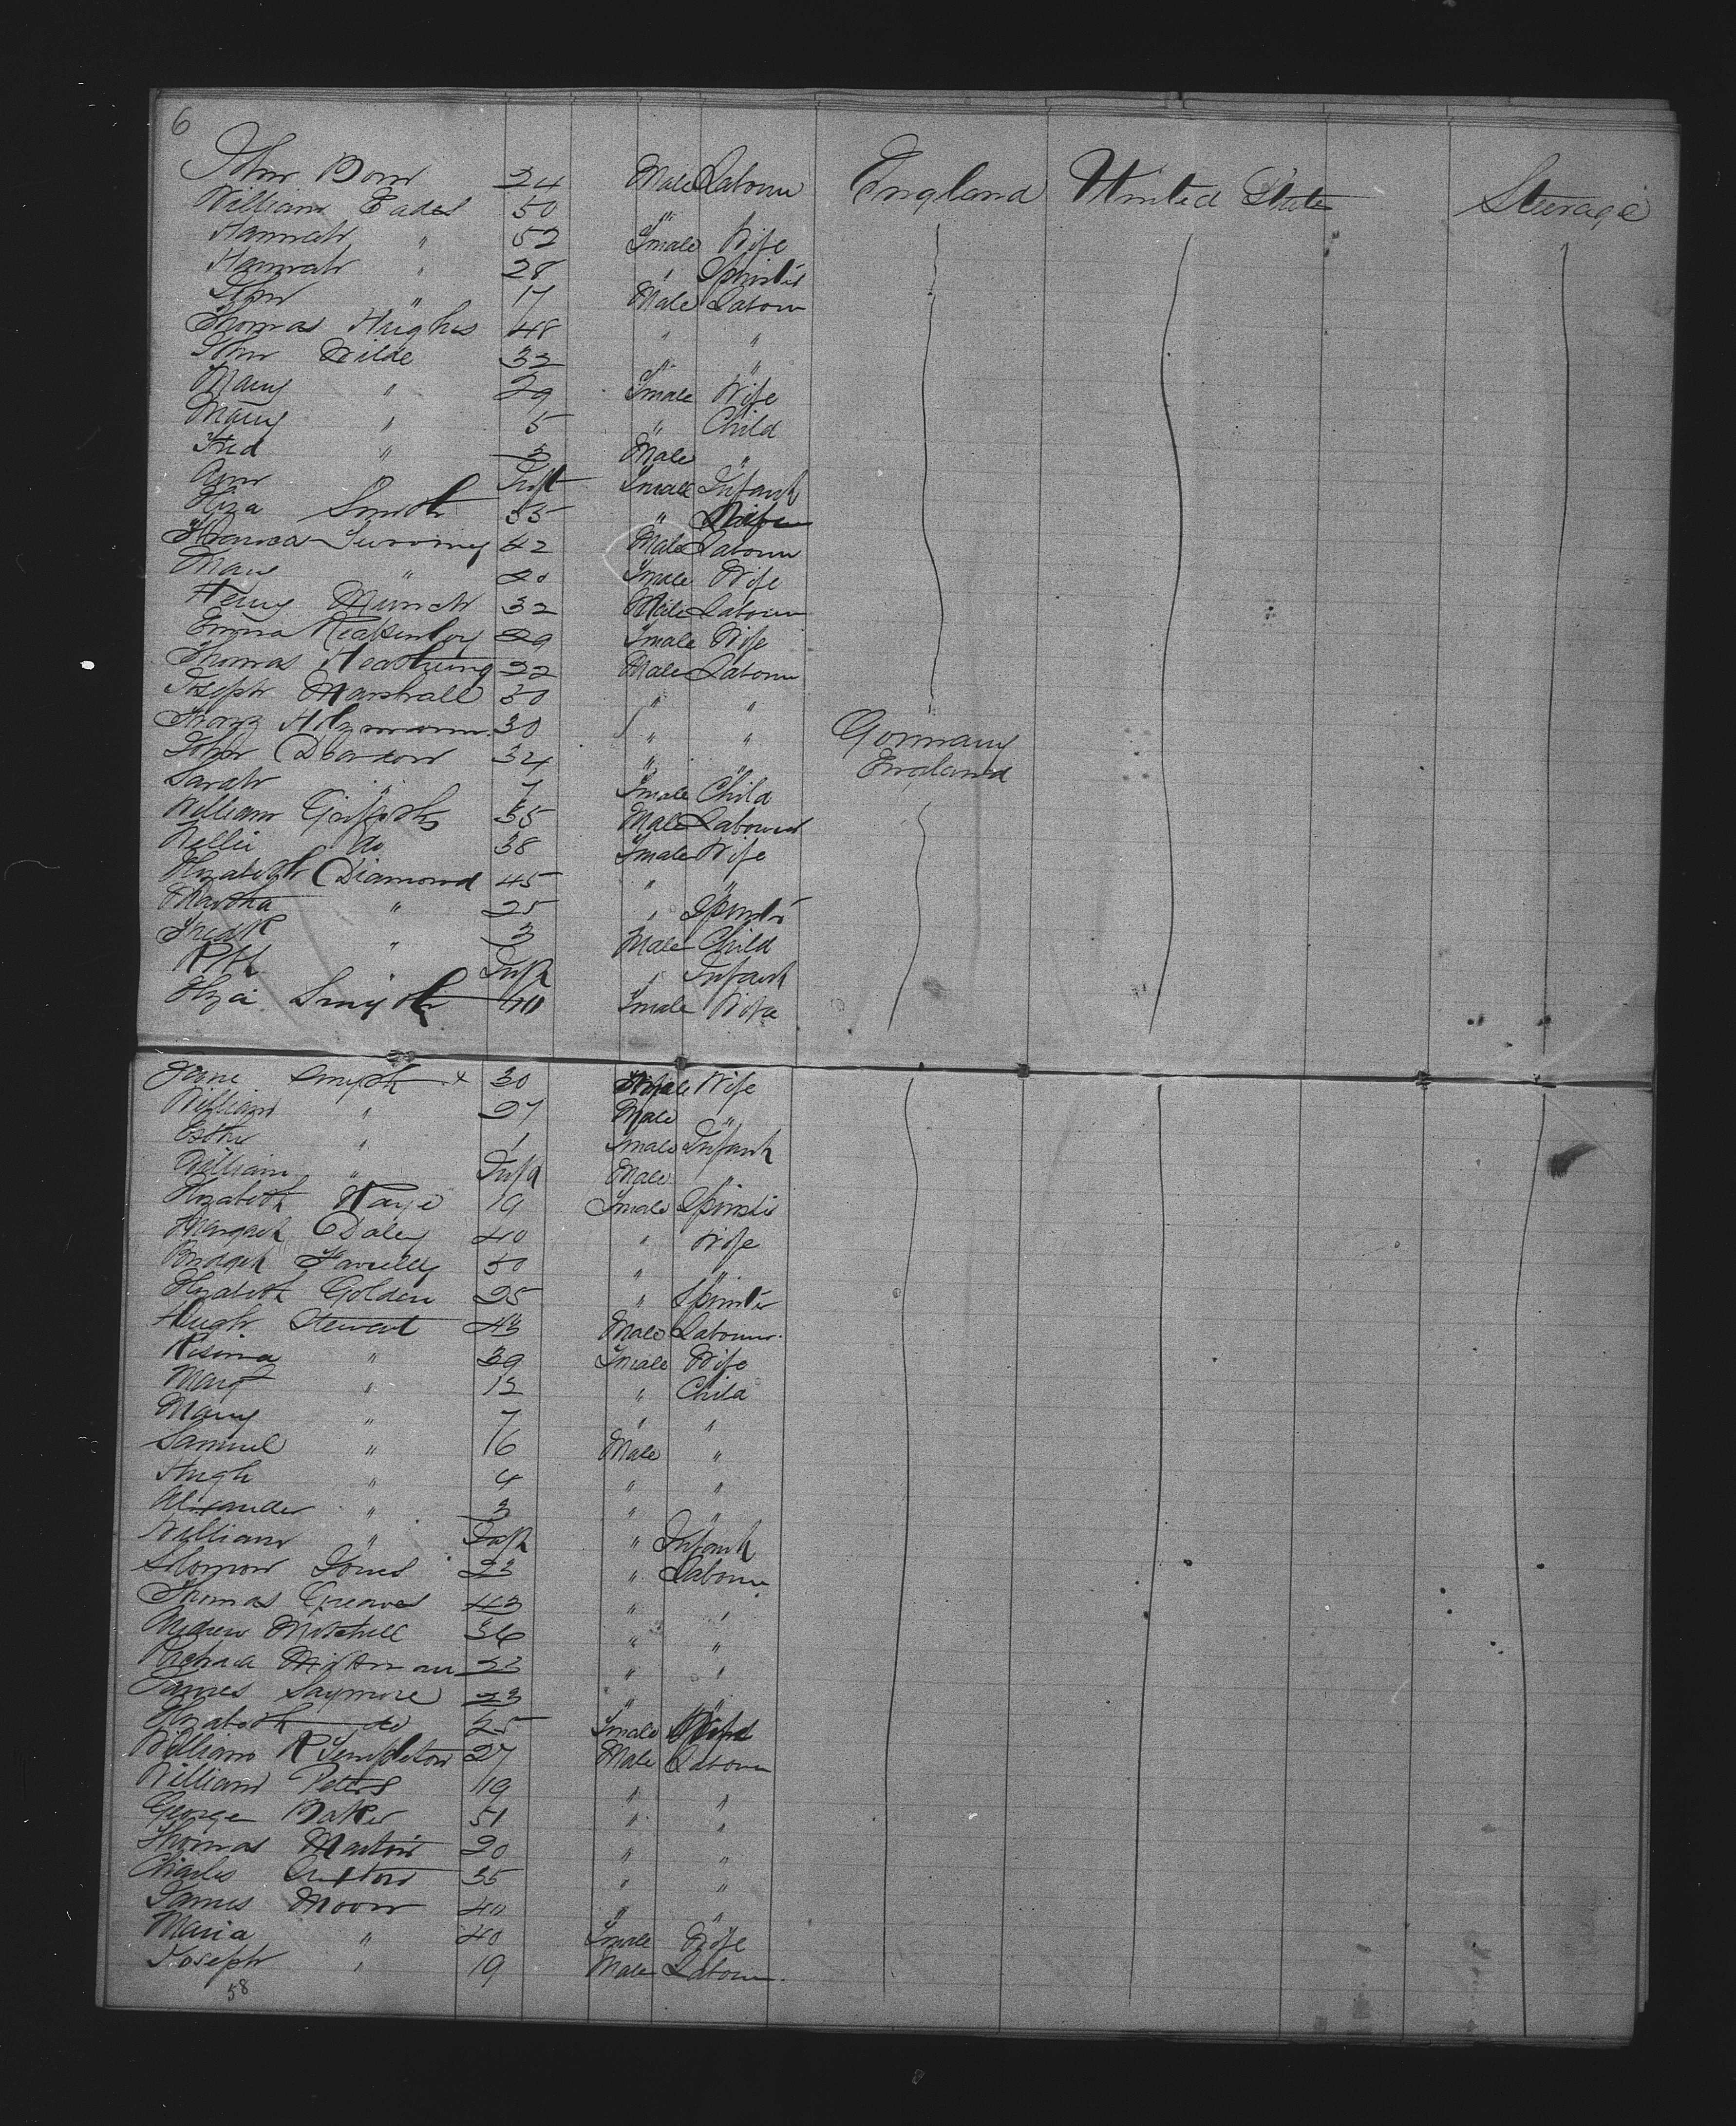 6
John Bow 24 Male Labour England United State Steerage
William Eades 50 "
Hannah " 52 Fmale Wife
Hannah " 28 " Spinster
John " 17 Male Labour
Thomas Hughes 48 " "
John Wilde 32 " "
Mary " 29 Fmale Wife
Mary " 5 " Child
Fred " 3 Male "
Ann Inft Fmale Infant
Eliza Smith 35 "
Thomas 42 Male Labour
Mary " 40 Fmale Wife
Henry 32 Male Labour
Emma 29 Fmale Wife
Thomas 22 Male Labour
Joseph Marshall 30 " "
Franz 30 " " Germany
John 34 " " England
Sarah " 7 Fmale Child
William Griffiths 35 Male Labourer
Nellie do 38 Fmale Wife
Elizabeth Diamond 45 " "
Martha " 25 " Spinster
Fredk " 3 Male Child
" Inft " Infant
Eliza Smyth 40 Fmale Wife
Jane Smyth x 30 Wife
William " 27 Male "
Esther " 1 Fmale Infant
William " Inft Male "
Elizabeth 19 Fmale Spinster
Margaret Daley 40 " Wife
Bridget 50 " "
Elizabeth Golden 25 " Spinster
Hugh Stewart 43 Male Labour
Rosina " 39 Fmale Wife
Margt " 12 " Child
Mary " 7 " "
Samuel " 6 Male "
Hugh " 4 " "
Alexander " 3 " "
William " Inft " Infant
Solomon Jones 23 " Labour
Thomas Greaves 43 " "
Andrew Mitchell 36 " "
Richard 23 " "
James Saymore 23 " "
Elizabeth do 25 Fmale
William R Templeton 27 Male Labour
William Peters 19 " "
George Baker 51 " "
Thomas Martin 20 " "
Charles 35 " "
James Moore 40 " "
Maria " 40 Fmale Wife
Joseph " 19 Male Labour
58